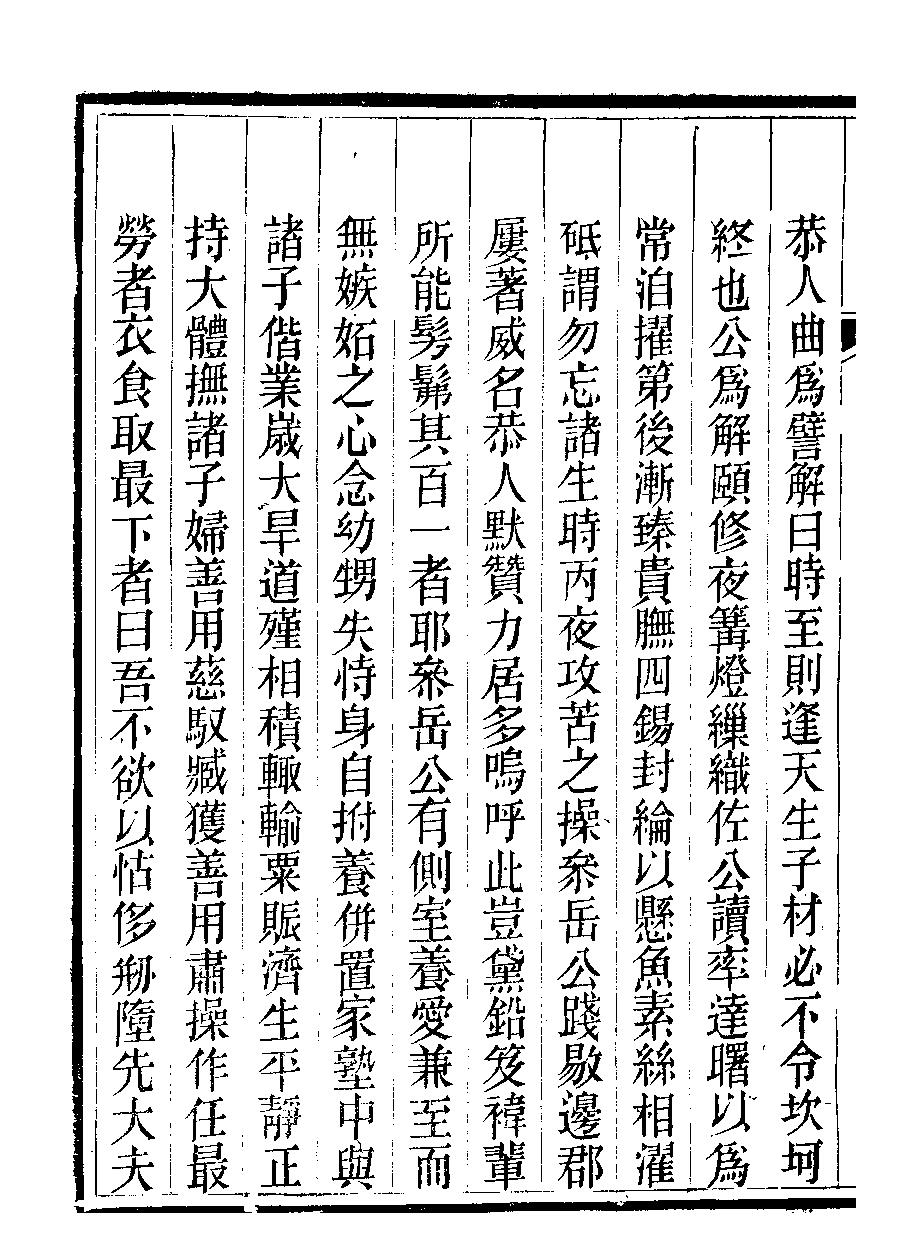 恭人曲爲譬解曰時至則逢天生子材必不令坎坷
終也公爲解頤修夜篝燈繅織佐公讀率達曙以爲
常洎擢第後漸臻貴膴四錫封綸以懸魚素絲相濯
砥謂勿忘諸生時丙夜攻苦之操叅岳公踐敭邊郡
屢著威名恭人默贊力居多嗚呼此豈黛鉛笈褘輩
所能髣髴其百一者耶叅岳公有側室養愛兼至而
無嫉妬之心念幼甥失恃身自拊養併置家塾中與
諸子偕業歲大旱道殣相積輙輸粟賑濟生平靜正
持大體撫諸子婦善用慈馭臧獲善用肅操作任最
勞者衣食取最下者曰吾不欲以怙侈刱隳先大夫